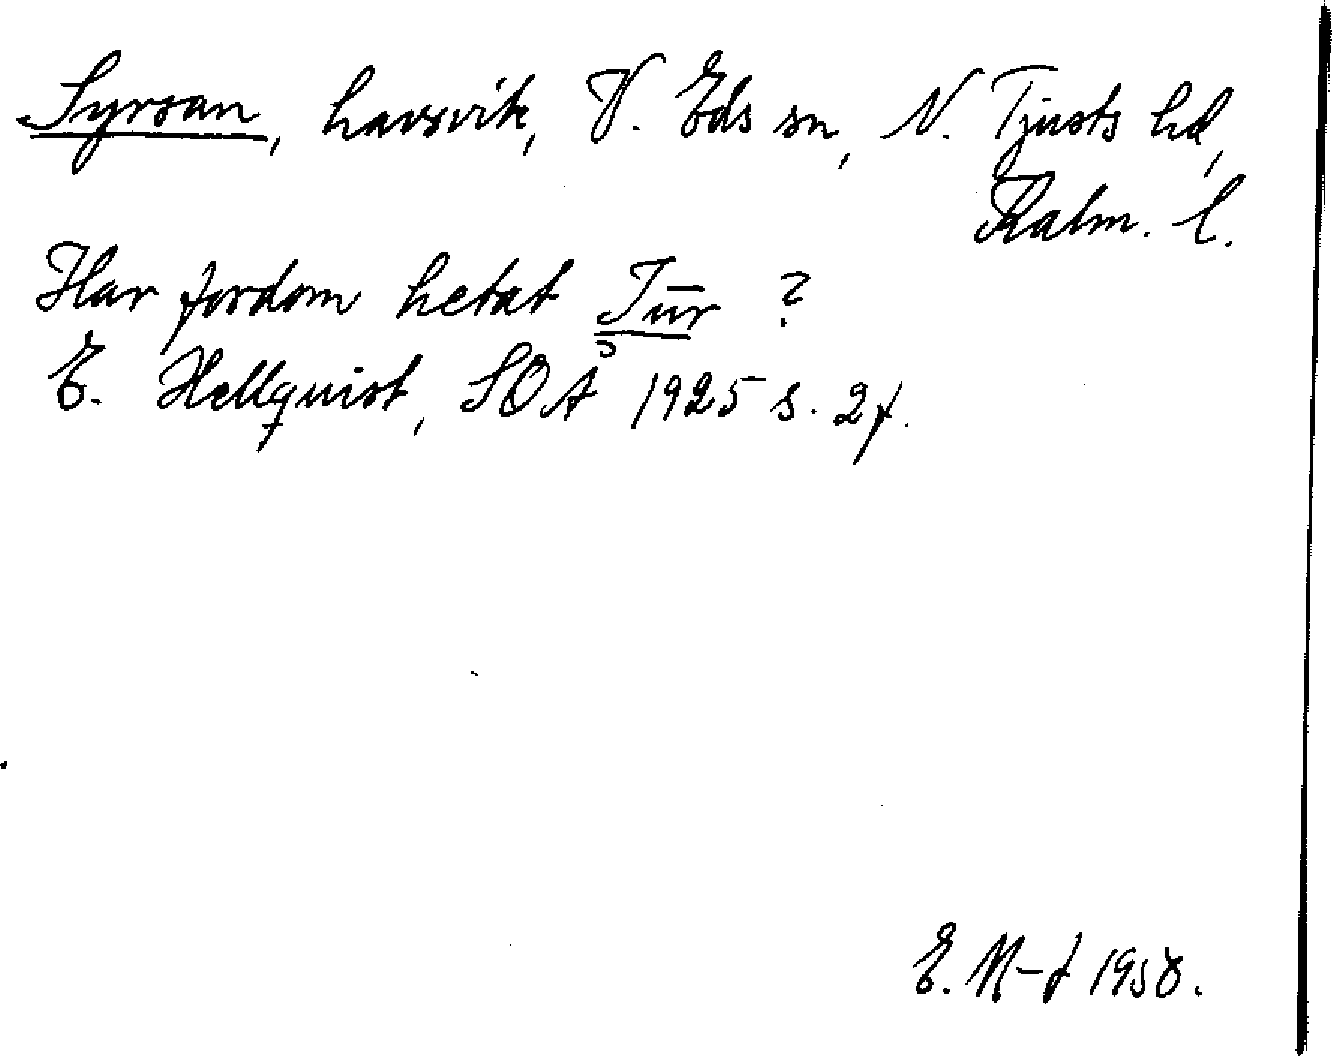 Syrsan, havsvik, V. Eds sn, N. Tjusts hd,
Kalm. l.
Har fordom hetat Tūr ?
E. Hellquist, SOÅ 1925 s. 2f.
E. M-d 1958.